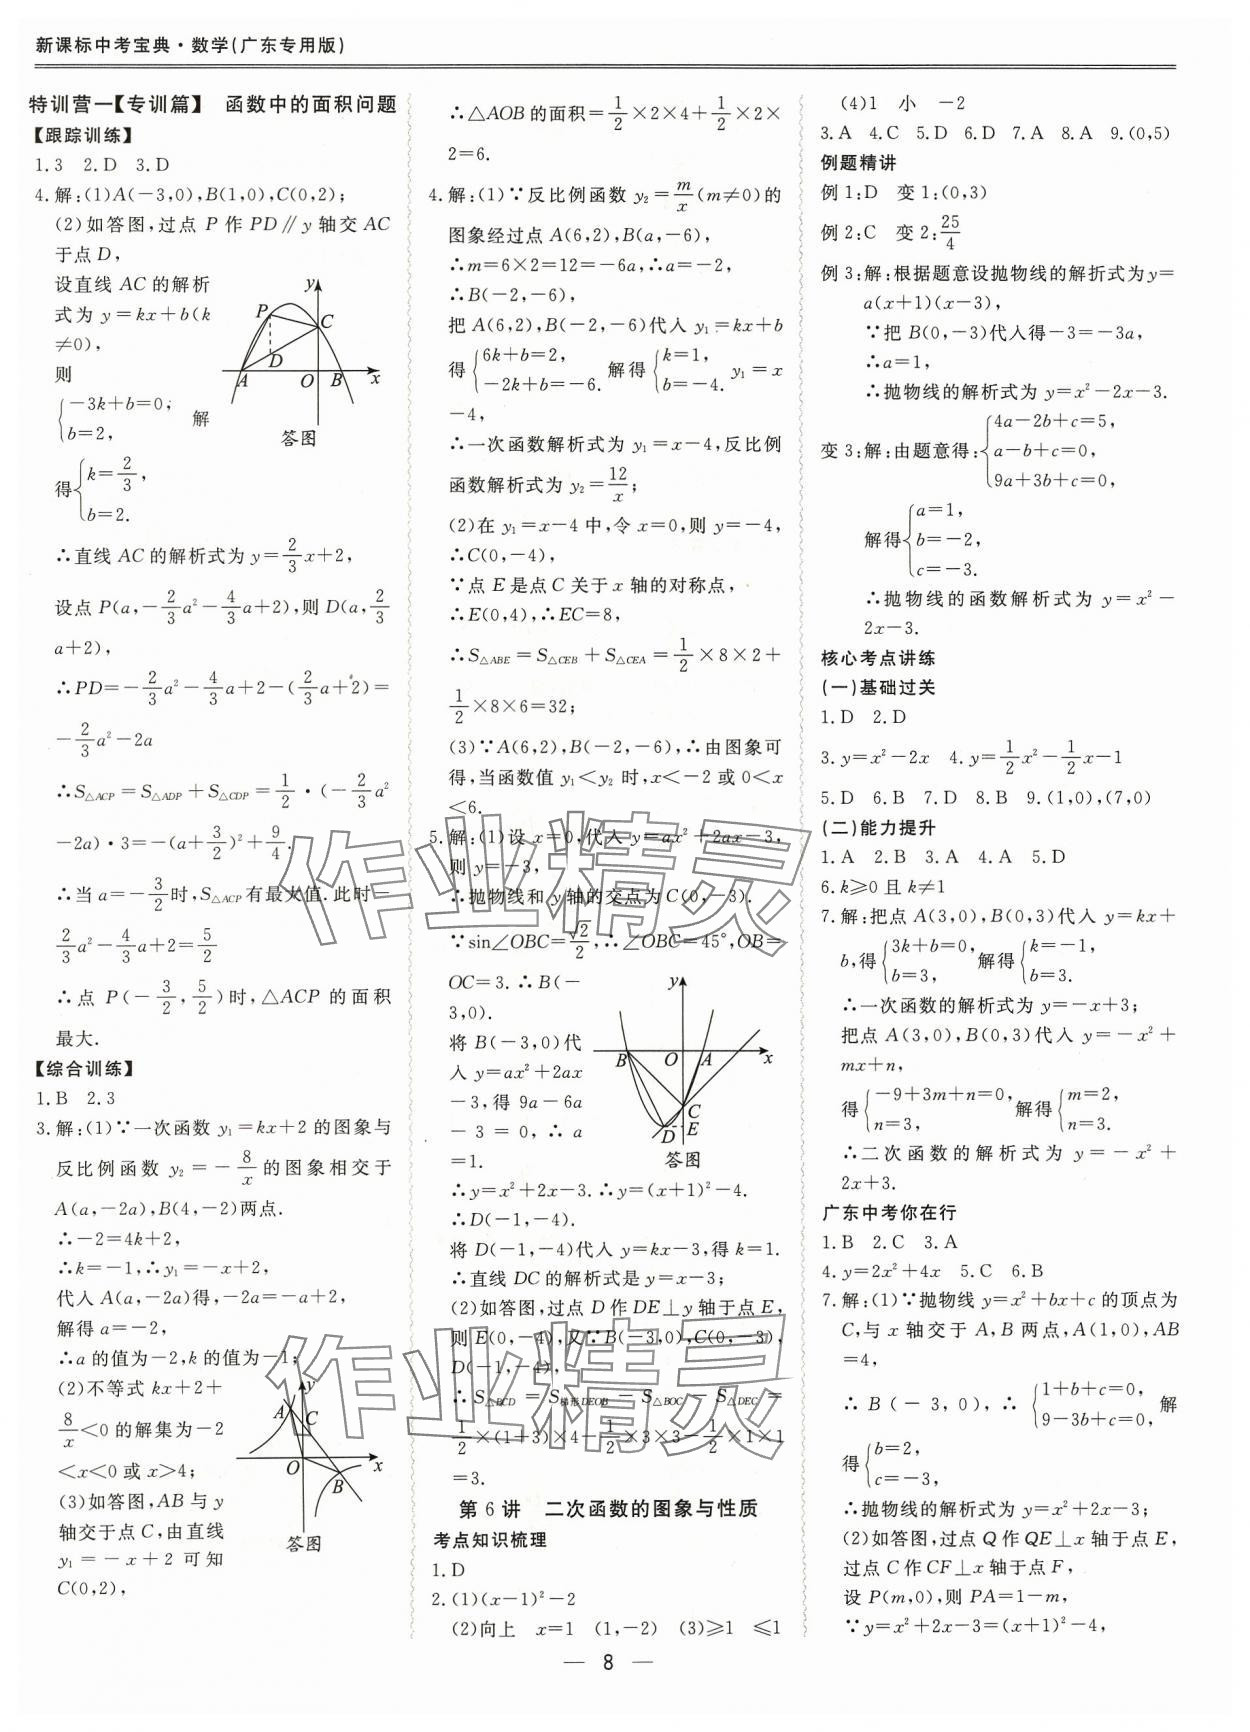 新课标中考宝典·数学(广东专用版)
特训营一【专训篇】 函数中的面积问题
【跟踪训练】
1.3 2.D 3.D
4.解:(1)A(-3,0),B(1,0),C(0,2);
(2)如答图,过点 P 作 PD∥y 轴交 AC
于点 D,
设直线 AC 的解析
式为 y=kx+b(k
≠0),
则
{-3k+b=0, b=2, 解
得{k=2/3, b=2.
y
P
C
D
A
O
B
x
答图
∴直线 AC 的解析式为 y=2/3x+2,
设点 P(a,-2/3a²-4/3a+2),则 D(a,2/3
a+2),
∴PD=-2/3a²-4/3a+2-(2/3a+2)=
-2/3a²-2a
∴S△ACP=S△ADP+S△CDP=1/2·(-2/3a²
-2a)·3=-(a+3/2)²+9/4.
∴当 a=-3/2时,S△ACP有最大值.此时-
2/3a²-4/3a+2=5/2
∴点 P(-3/2,5/2)时,△ACP 的面积
最大.
【综合训练】
1.B 2.3
3.解:(1)∵一次函数 y₁=kx+2 的图象与
反比例函数 y₂=-8/x的图象相交于
A(a,-2a),B(4,-2)两点.
∴-2=4k+2,
∴k=-1,∴y₁=-x+2,
代入 A(a,-2a)得,-2a=-a+2,
解得 a=-2,
∴a 的值为-2,k 的值为-1;
(2)不等式 kx+2+
8/x<0 的解集为-2
<x<0 或 x>4;
(3)如答图,AB 与 y
轴交于点 C,由直线
y₁=-x+2 可知
C(0,2),
y
A
C
O
B
x
答图
∴△AOB 的面积=1/2×2×4+1/2×2×
2=6.
4.解:(1)∵反比例函数 y₂=m/x(m≠0)的
图象经过点 A(6,2),B(a,-6),
∴m=6×2=12=-6a,∴a=-2,
∴B(-2,-6),
把 A(6,2),B(-2,-6)代入 y₁=kx+b
得{6k+b=2, -2k+b=-6. 解得{k=1, b=-4. y₁=x
-4,
∴一次函数解析式为 y₁=x-4,反比例
函数解析式为 y₂=12/x;
(2)在 y₁=x-4 中,令 x=0,则 y=-4,
∴C(0,-4),
∵点 E 是点 C 关于 x 轴的对称点,
∴E(0,4),∴EC=8,
∴S△ABE=S△CEB+S△CEA=1/2×8×2+
1/2×8×6=32;
(3)∵A(6,2),B(-2,-6),∴由图象可
得,当函数值 y₁<y₂ 时,x<-2 或 0<x
<6.
5.解:(1)设 x=0,代入 y=ax²+2ax-3,
则 y=-3,
∴抛物线和 y 轴的交点为 C(0,-3).
∵sin∠OBC=√2/2,∴∠OBC=45°,OB=
OC=3.∴B(-
3,0).
将 B(-3,0)代
入 y=ax²+2ax
-3,得 9a-6a
-3=0,∴a
=1.
y
B
O
A
x
C
D
E
答图
∴y=x²+2x-3.∴y=(x+1)²-4.
∴D(-1,-4).
将 D(-1,-4)代入 y=kx-3,得 k=1.
∴直线 DC 的解析式是 y=x-3;
(2)如答图,过点 D 作 DE⊥y 轴于点 E,
则 E(0,-4),又∵B(-3,0),C(0,-3),
D(-1,-4).
∴S△BCD=S梯形DEOB-S△BOC-S△DEC=
1/2×(1+3)×4-1/2×3×3-1/2×1×1
=3.
第 6 讲 二次函数的图象与性质
考点知识梳理
1.D
2.(1)(x-1)²-2
(2)向上 x=1 (1,-2) (3)≥1 ≤1
(4)1 小 -2
3.A 4.C 5.D 6.D 7.A 8.A 9.(0,5)
例题精讲
例 1:D 变 1:(0,3)
例 2:C 变 2:25/4
例 3:解:根据题意设抛物线的解折式为 y=
a(x+1)(x-3),
∵把 B(0,-3)代人得-3=-3a,
∴a=1,
∴抛物线的解析式为 y=x²-2x-3.
变 3:解:由题意得:{4a-2b+c=5, a-b+c=0, 9a+3b+c=0,
解得{a=1, b=-2, c=-3.
∴抛物线的函数解析式为 y=x²-
2x-3.
核心考点讲练
(一)基础过关
1.D 2.D
3.y=x²-2x 4.y=1/2x²-1/2x-1
5.D 6.B 7.D 8.B 9.(1,0),(7,0)
(二)能力提升
1.A 2.B 3.A 4.A 5.D
6.k≥0 且 k≠1
7.解:把点 A(3,0),B(0,3)代入 y=kx+
b,得{3k+b=0, b=3, 解得{k=-1, b=3.
∴一次函数的解析式为 y=-x+3;
把点 A(3,0),B(0,3)代入 y=-x²+
mx+n,
得{-9+3m+n=0, n=3, 解得{m=2, n=3.
∴二次函数的解析式为 y=-x²+
2x+3.
广东中考你在行
1.B 2.C 3.A
4.y=2x²+4x 5.C 6.B
7.解:(1)∵抛物线 y=x²+bx+c 的顶点为
C,与 x 轴交于 A,B 两点,A(1,0),AB
=4,
∴B(-3,0),∴{1+b+c=0, 9-3b+c=0, 解
得{b=2, c=-3,
∴抛物线的解析式为 y=x²+2x-3;
(2)如答图,过点 Q 作 QE⊥x 轴于点 E,
过点 C 作 CF⊥x 轴于点 F,
设 P(m,0),则 PA=1-m,
∵y=x²+2x-3=(x+1)²-4,
— 8 —
作业精灵
作业精灵